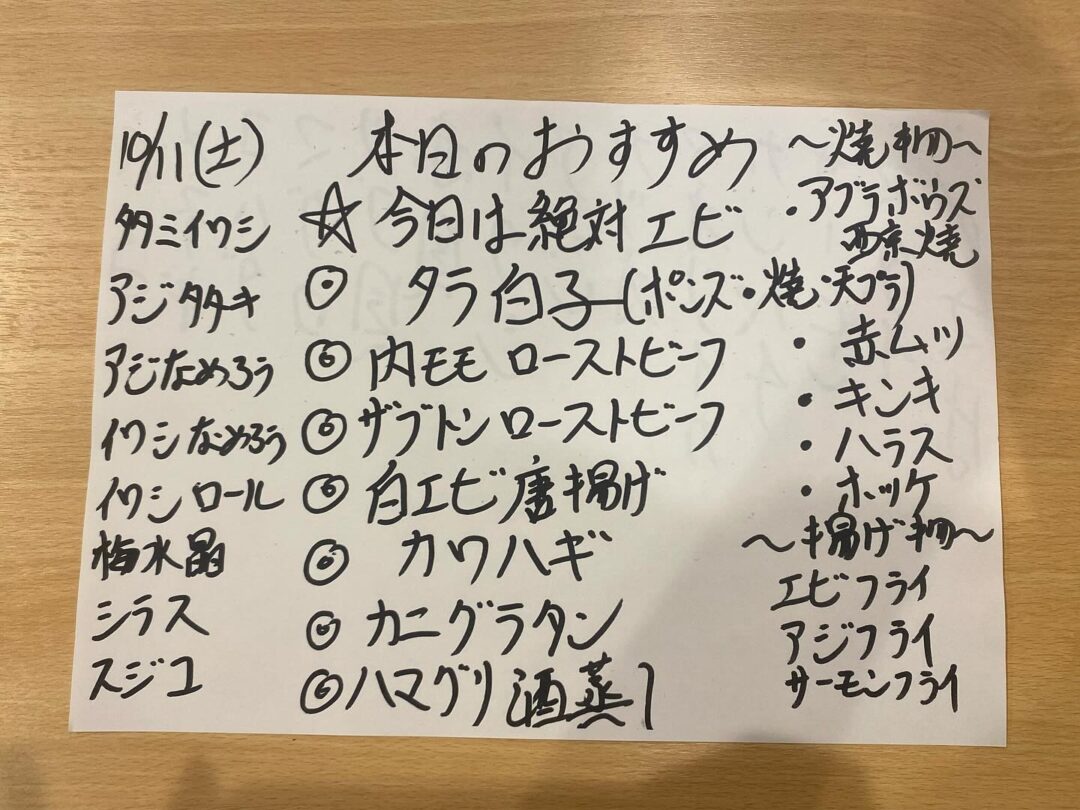 10/11(土)
タタミイワシ
アジタタキ
アジなめろう
イワシなめろう
イワシロール
梅水晶
シラス
スジコ
本日のおすすめ
☆今日は絶対エビ
◎ タラ白子(ポンズ・焼・天プラ)
◎ 内モモ ローストビーフ
◎ ザブトンローストビーフ
◎ 白エビ唐揚げ
◎ カワハギ
◎ カニグラタン
◎ ハマグリ酒蒸し
〜焼物〜
・アブラボウズ
西京焼
・赤ムツ
・キンキ
・ハラス
・ホッケ
〜揚げ物〜
エビフライ
アジフライ
サーモンフライ